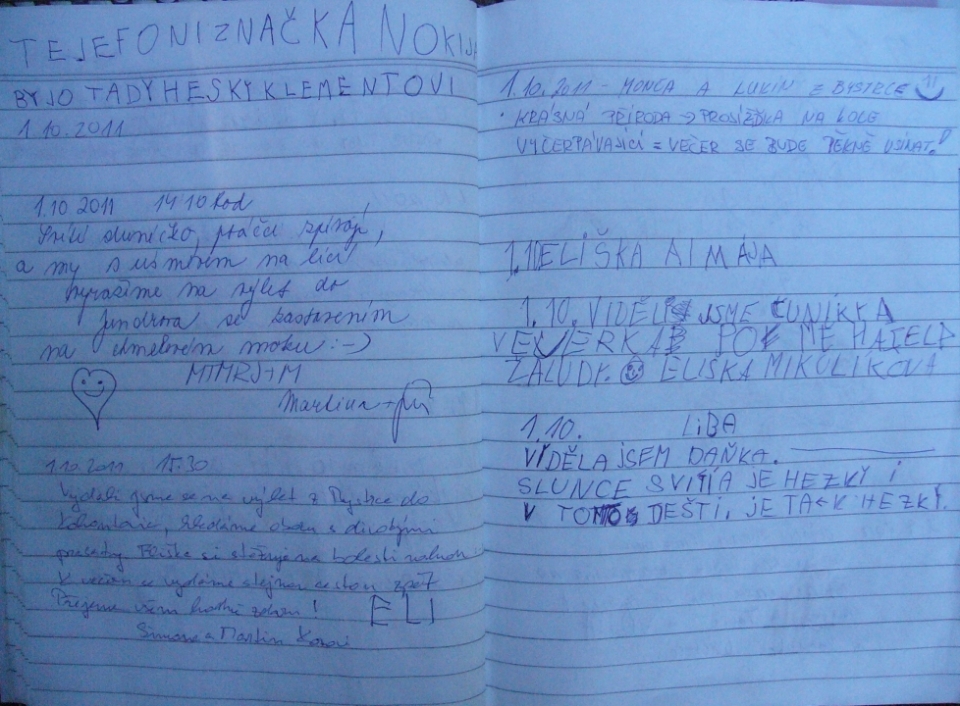 TEJEFONIZNAČKA NOKIJA
BYJO TADY HESKY KLEMENTOVI
1.10.2011
1.10 2011 14 10 hod
Svítí sluníčko, ptáčci zpívají,
a my s úsměvem na líci
vyrazíme na výlet do
Jundrova se zastavením
na chmelovém moku :-)
MTMRJ+M
Martina +
1.10.2011 15.30
Vydali jsme se na výlet z Bystrce do
s divokými
prasátky Eliška si stěžuje na bolesti nohou
K večeru se vydáme stejnou cestou zpět
Přejeme všem hodně zdraví!
ELI
Simona a Martin
1.10.2011 - MONČA A LUKIN Z BYSTRCE
• KRÁSNÁ PŘÍRODA → PROJÍŽĎKA NA KOLE
VYČERPÁVAJÍCÍ = VEČER SE BUDE PĚKNĚ USÍNAT!
1.10 ELIŠKA AI MÁJA
1.10. VIDĚLI JSME ČUNÍKKA
VEVERKA PO MĚ HAZELA
ŽALUDY. ELIŠKA MIKULÍKOVÁ
1.10. LIBA
VIDĚLA JSEM DAŇKA.
SLUNCE SVÍTÍA JE HEZKY I
V TOMTO DEŠTI, JE TAK HEZKY.